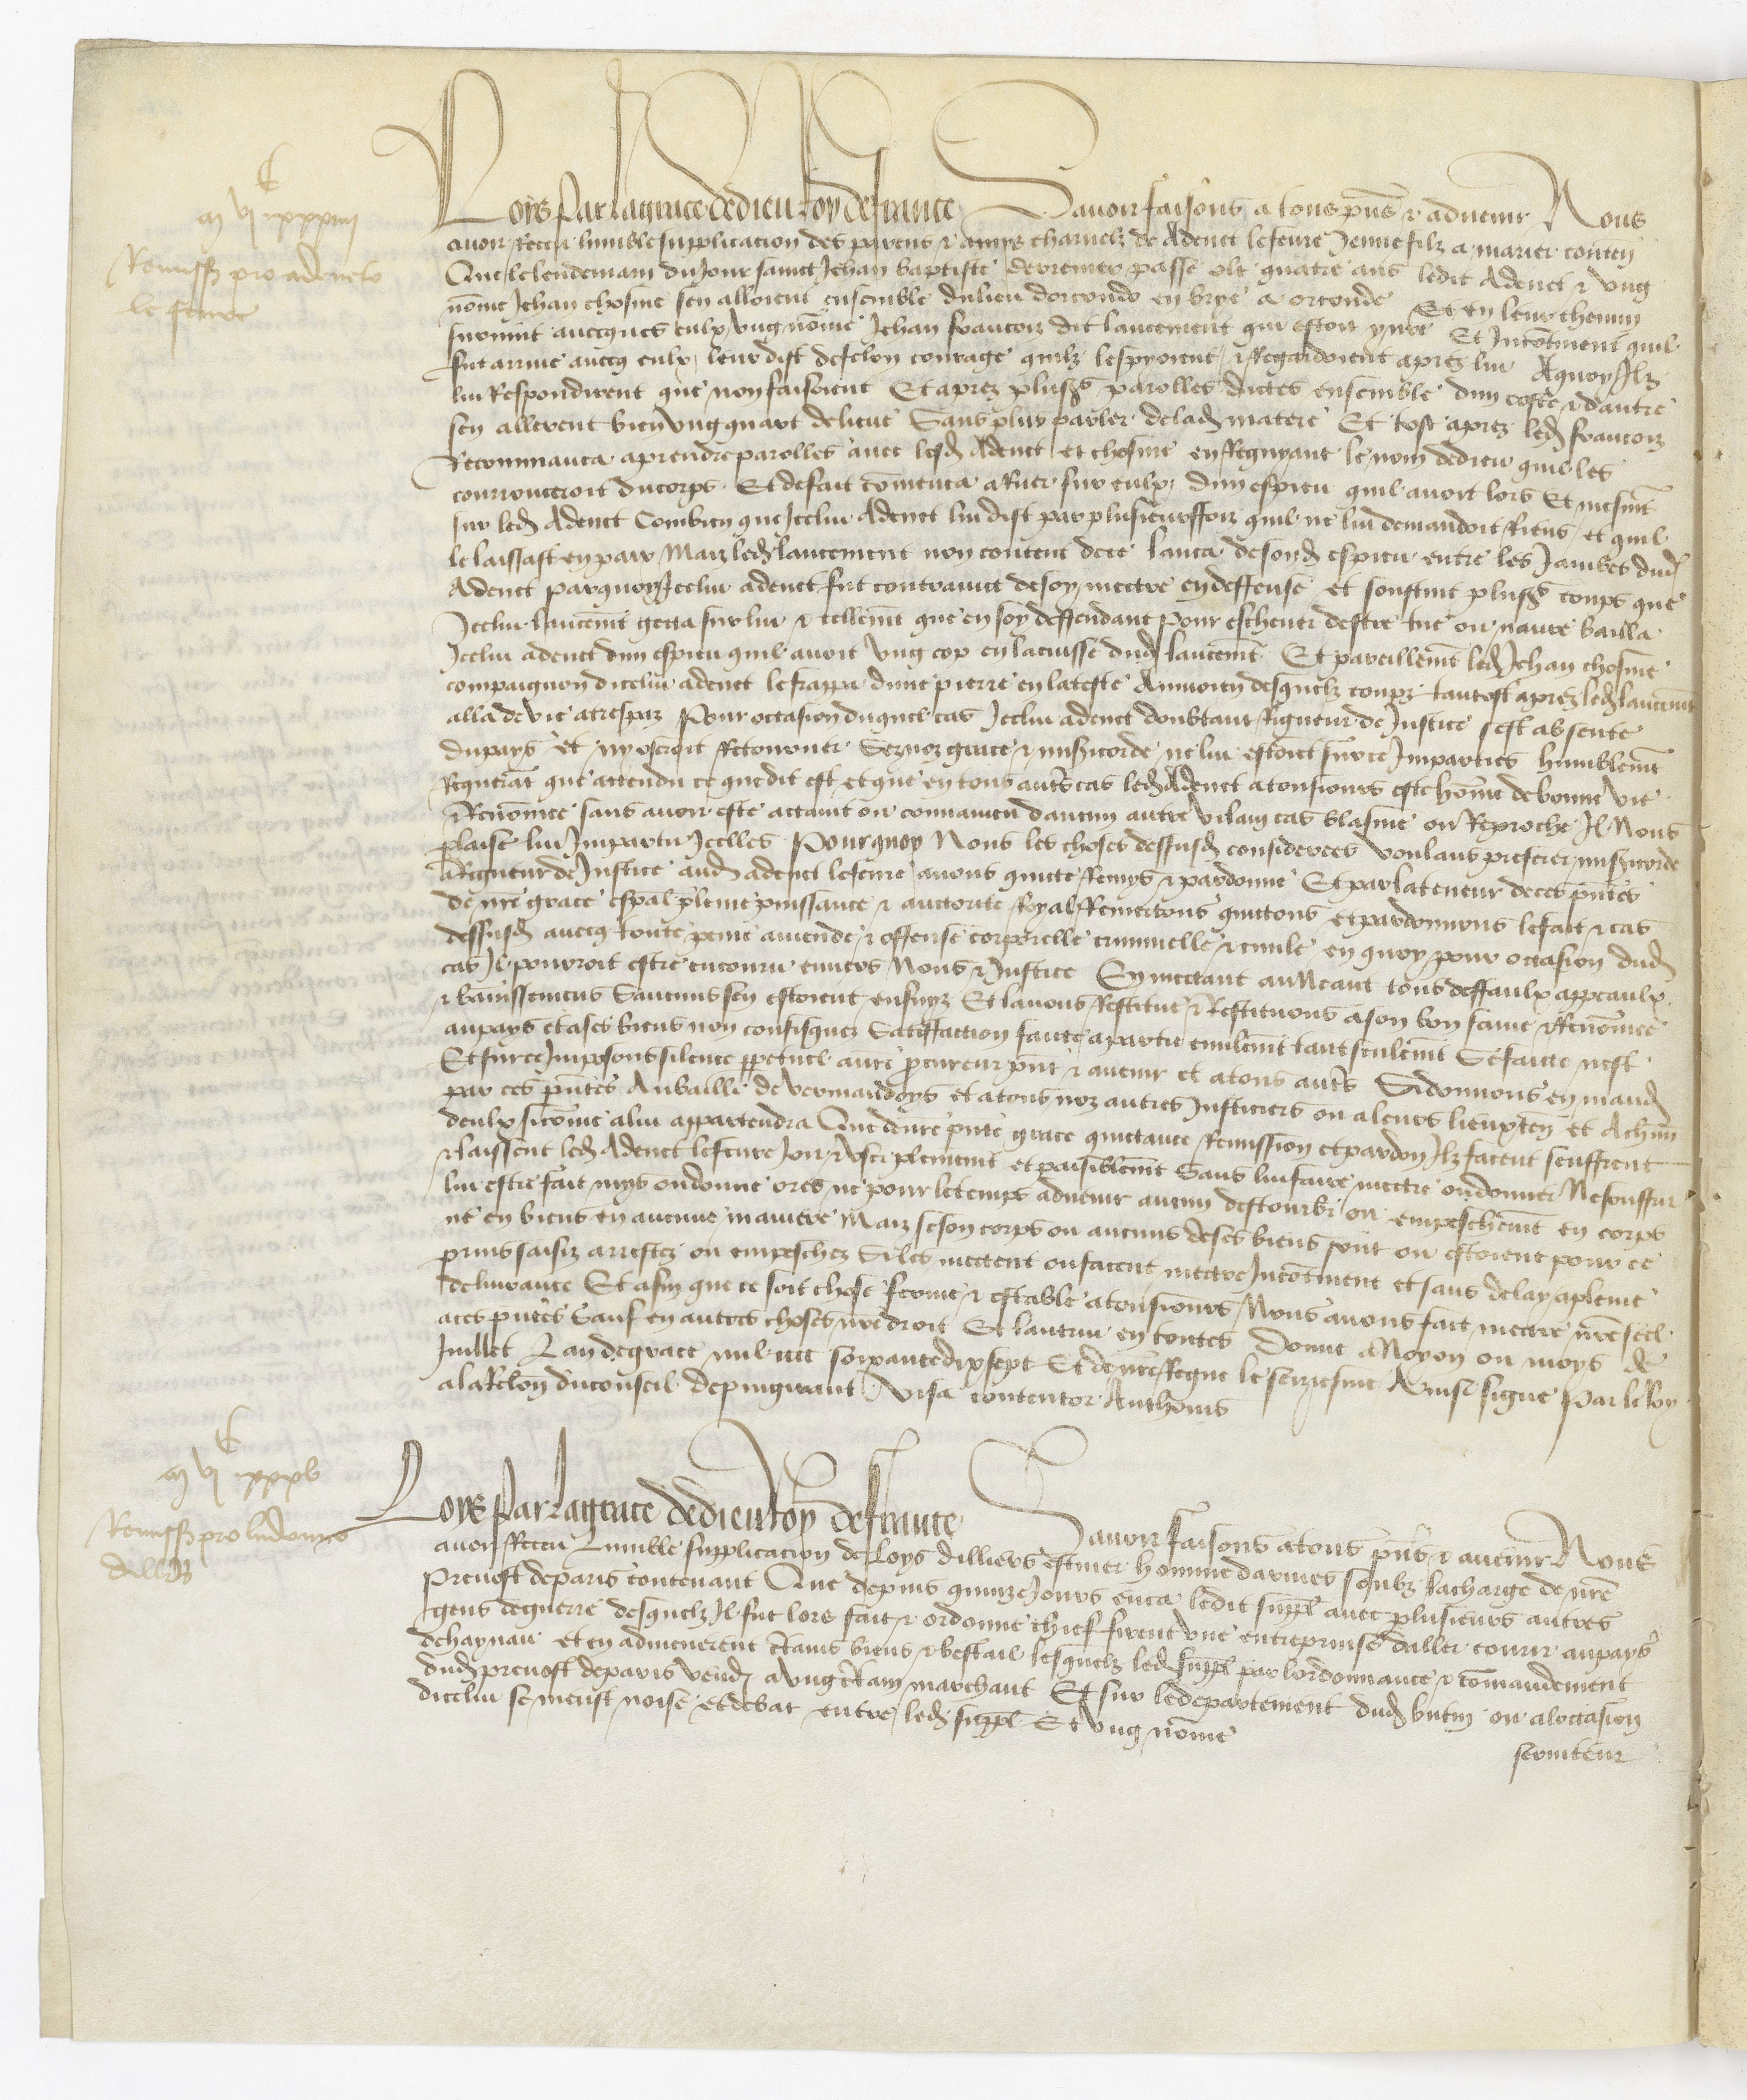 c
m vi xxxiiii
Remissio pro adeneto
le fevre
Loys par la grace de dieu Roy de france Savoir faisons a tous pns & advenir Nous
avoir receu lumble supplicacion des parens & amys charnelz de Adenet lefevre Jeune filz a marier conten
Que le lendemain du Jour sainct Jehan baptiste derrenier passe olt quatre ans ledit Adenet & ung
nome Jehan chosme sen alloient ensemble du lieu dorconde en brye a orconde Et en leur chemin
survint avecques eulx ung nome Jehan francoiz dit lancement qui estoit yvre Et Incotment quil
fut arrive avecq eulx leur dist de felon courage quilz lespyoient & Regardoient aprez lui A quoy Ilz
lui Respondirent que non faisoient Et aprez pluss parolles dictes ensemble dun coste & dautre
sen allerent bien ung quart de lieue Sans plus parler de lad matere Et tost aprez led francoiz
Recommanca a prendre parolles avec lesd Adenet et chosme en Regnyant le nom de dieu quil les
courrouceroit du corps Et de fait comenca a Ruer sur eulx dun espieu quil avoit lors Et mesmt
sur led Adenet Combien que Icellui Adenet lui dist par plusieurs foiz quil ne lui demandoit Riens et quil
le laissast en paix Maiz led lancement non content de ce lanca de sond espieu entre les Jambes dud
Adenet parquoy Icellui adenet fut contrainct de soy mectre en deffense et soustint pluss coups que
Icellui lancemt gecta sur lui & tellemt que en soy deffendant pour eschever destre tue ou navre bailla
Icellui adenet dun espieu quil avoit ung cop en la cuisse dud lancemt Et pareillemt led Jehan chosme
compaignon dicelui adenet le frappa dune pierre en la teste Au moien desquelz coups tantost aprez led lancemt
alla de vie a trespaz Pour occasion duquel cas Icellui adenet doubtant Rigueur de Justice sest absente
du pays Et ny oseroit Retourner Se noz grace & misericorde ne lui estoiet sur ce Imparties humblemt
Requerat que actendu ce que dit est et que en tous autrs cas led Adenet a tousiours este home de bonne vie
& Renomee sans avoir este actaint ou convaincu daucun autre vilain cas blasme ou Reproche Il Nous
plaise lui Impartir Icelles Pourquoy Nous les choses dessusd considerees voulans preferer misericorde
a Rigueur de Justice aud adenet lefevre avons quicte Remys & pardonne Et par la teneur de ces pntes
de nre grace espal pleine puissance & auctorite Royal Remectons quictons et pardonnons le fait & cas
dessusd avecq toute peine amende & offense corporelle criminelle & civile en quoy pour occasion dud
cas Il pourroit estre encouru envers Nous & Justice En mectant au Neant tous deffaulx appeaulx
& banissemens Saucuns sen estoient ensuyz Et lavons Restitue & Restituons a son bon fame & Renomee
au pays et a ses biens non confisquez Satiffaction faicte a partie civilemt tant seulemt Se faicte nest
Et sur ce Imposons silence perpetuel a nre procureur pnt & avenir et a tous autrs Si donnons en mand
par ces pntes Au bailli de vermandoys et a tous noz autres Justiciers ou a leurs lieuxten et A chun
deulx si come a lui appartendra Que de nre pnte grace quictance Remission et pardon Ilz facent seuffrent
& laissent led Adenet lefevre Joir & user plememt et paisiblemt Sans lui faire mectre ou donner Ne souffrir
lui estre fait mys ou donne ores ne pour le temps advenir aucun destourbr ou empeschemt en corps
ne en biens en aucune maniere Maiz se son corps ou aucuns de ses biens sont ou estoient pour ce
prins saisiz arrestez ou empeschez Si les mectent ou facent mectre Incotment et sans delay a pleine
delivrance Et afin que ce soit chose ferme & estable a tousiours Nous avons fait mectre nre seel
a ces pntes Sauf en autres choses nre droit Et lautrui en toutes Donne a Noyon ou moys de
Juillet Lan de grace mil iiiic soixante dix sept Et de nre Regne le seiziesme Ainsi signe Par le Roy
a la Relon du conseil depinguant Visa contentor Anthonis
c
m vi xxxv
Remissio pro ludovico
dilliers
Loys par la grace de dieu Roy de france Savoir faisons a tous pns & avenir Nous
avoir Receu Lumble supplicacion de Loys dilliers escuier homme darmes soubz la charge de nre
Prevost de paris contenant Que depuis quinze Jours enca ledit suppl avec plusieurs autres
gens de guerre desquelz Il fut lors fait & ordonne chief firent une entreprinse daller courir au pays
de haynau et en admenerent crtains biens & bestail lesquelz led suppl par lordonnance & comandement
dud prevost de paris vend a ung crtain marchant Et sur le departement dud butin ou a loccasion
dicellui se meust noise et debat entre led suppl Et ung nome
serviteur